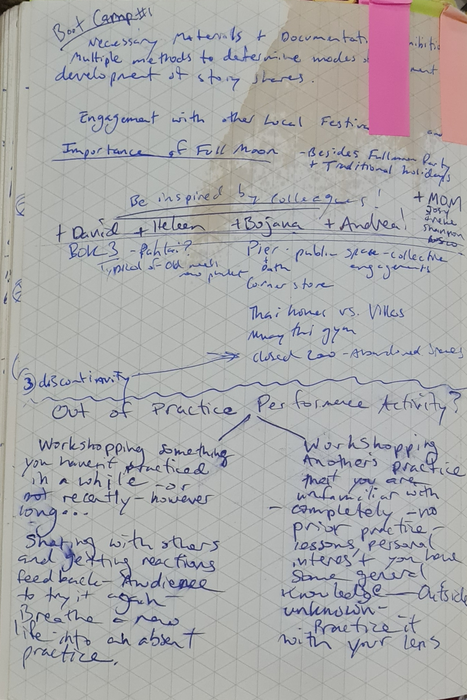 Boot Camp #1
Necessary Materials + Documentati
Multiple methods to determine modes
development of story shares.
Engagement with other Local Festiva
Importance of Full Moon - Besides Fullmoon Party
+ Traditional holidays
Be inspired by Colleagues!
+ MOM
+ David + Heleen + Bojana + Andrea!
shannon
Pier - public space - collective
engagement
path
Corner store
Thai homes vs. Villas
Muay thai gym
closed zoo - Abandoned Spaces
③ discontinuity
Out of Practice Performance Activity?
Workshopping something
you havent practiced
in a while - or
not recently - however
long...
Sharing with others
and getting reactions
feedback - Audience
to try it again -
Breathe a new
life into an absent
practice.
Workshopping
Another's practice
that you are
unfamiliar with
- completely - no
prior practice -
lessons, personal
interest you have
some general
knowledge - Outside
unknown -
- Practice it
with your lens